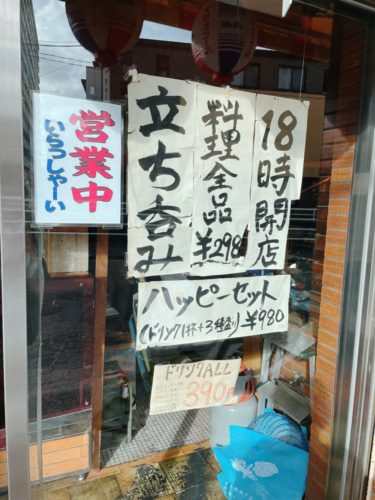 営業中
いらっしゃーい
18時開店
料理全品
¥298
立ち呑み
ハッピーセット
(ドリンク1杯+3種盛り)¥980
ドリンクALL
390円